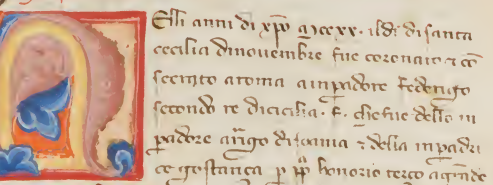 Elli anni di xpo Mccxx. il di di santa
cecilia dinouembre fue coronato ⁊ co
secrato aroma ainpadore Federigo
secondo re dicicilia. f. che fue dello in
padore arrigo di soauia ⁊ della inpadri
ce gostanca p pp honorio terço agrande